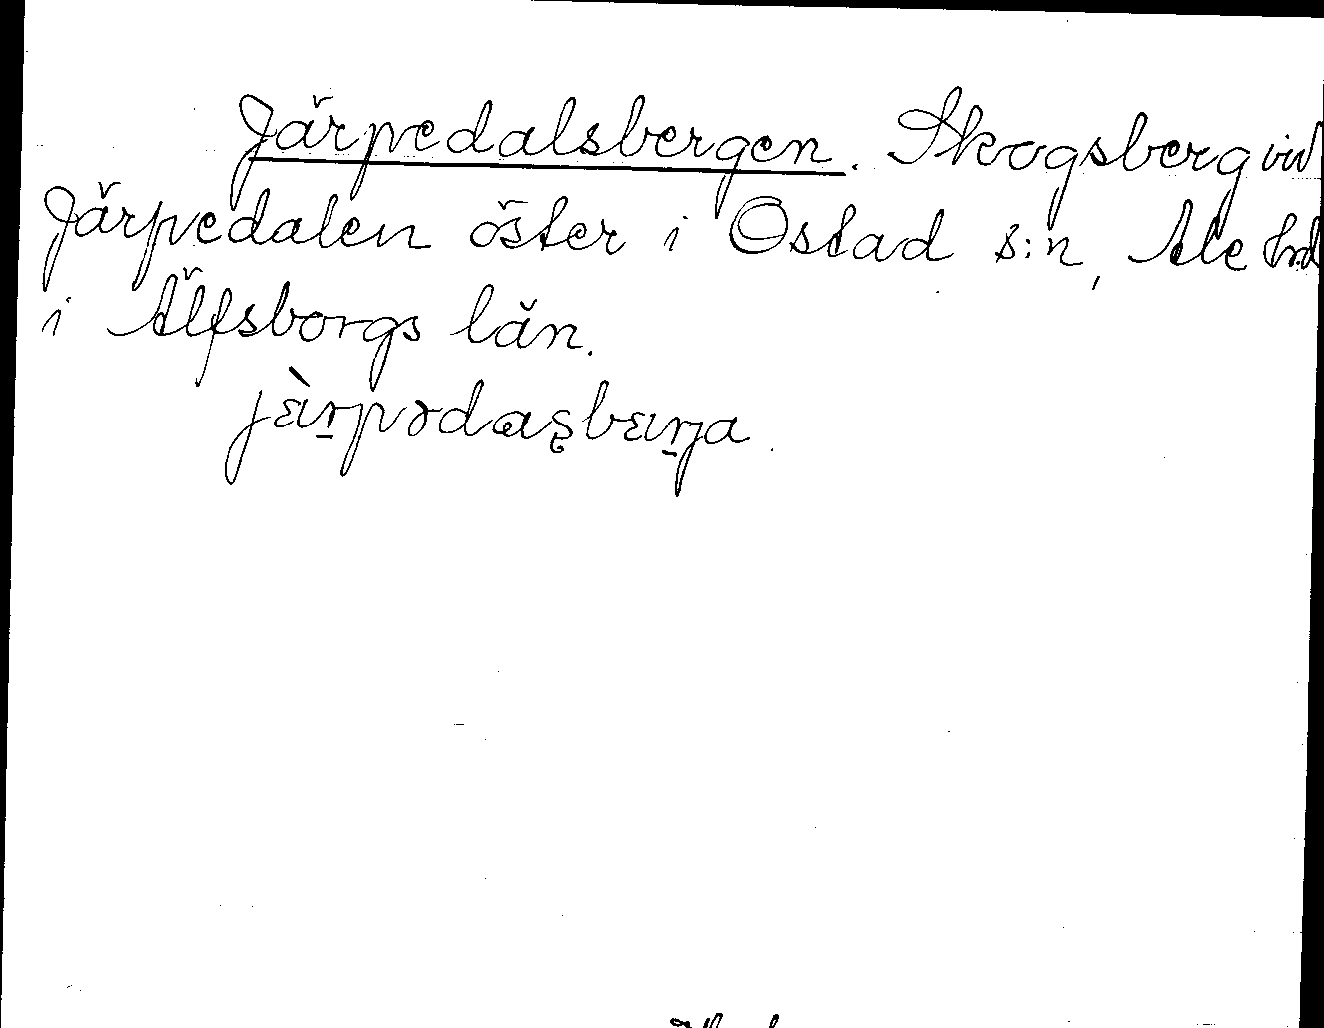 Järpedalsbergen. Skogsberg vid
Järpedalen öster i Ostad s:n, Ale hrd
i Älfsborgs län.